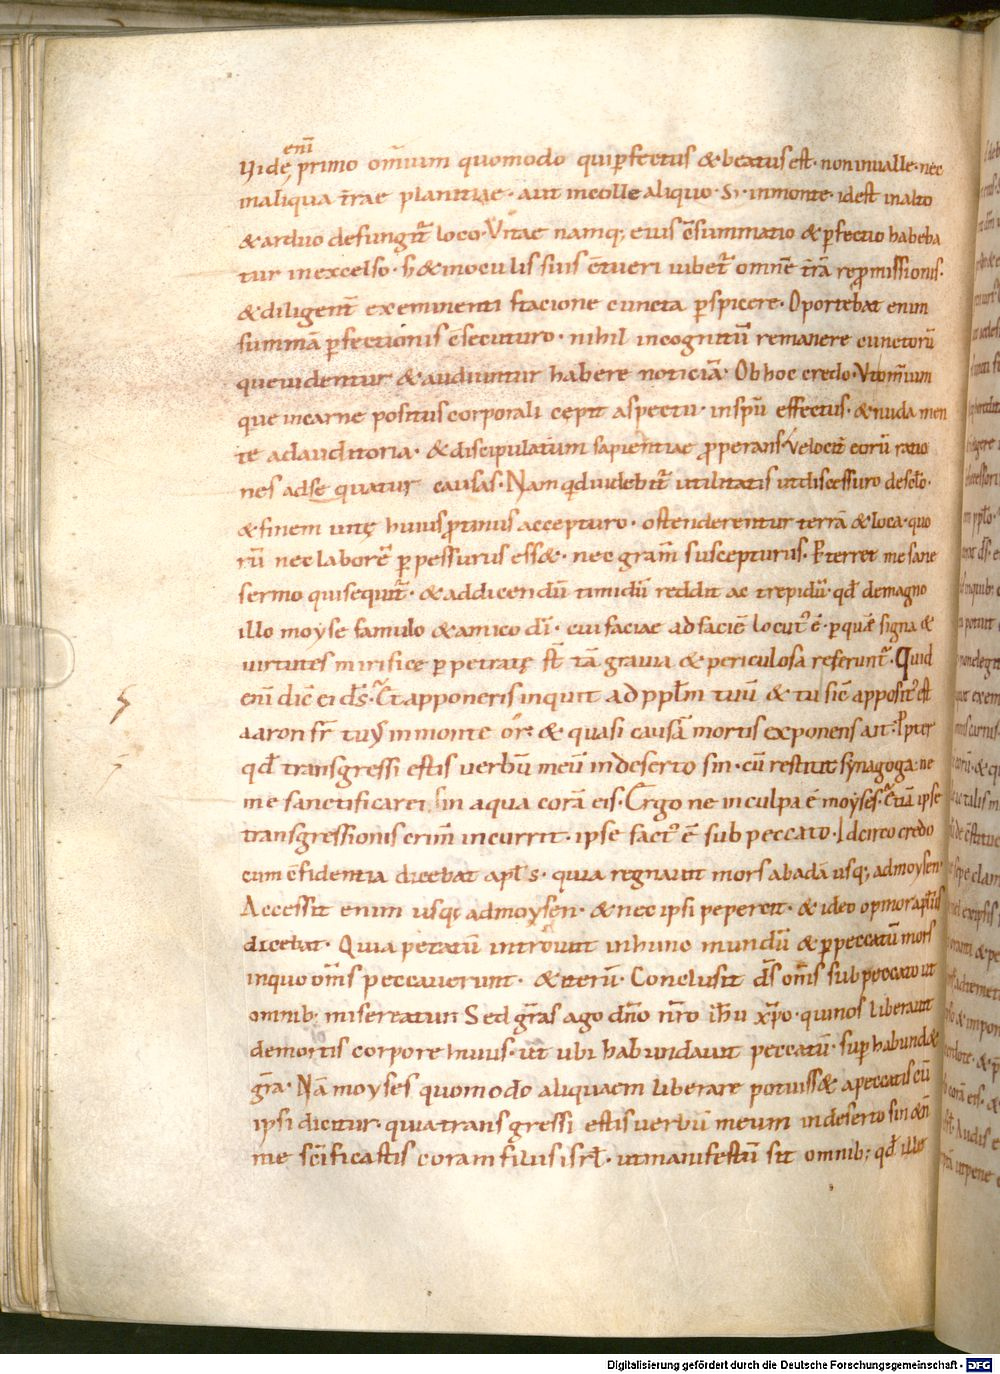 enī
Uidę primo om̅ium quomodo quiꝑfectus & beatus est · noninualle · nec
inaliqua t̅rae planitiae · aut incolle aliquo · S; inmonte · idest inalto
& arduo defungit̅ loco · Vitae namq; eius c̅summatio & ꝑfectio habeba
tur inexcelso · h & inoculis suis c̅tueri iubet̅ omne̅ t̅ra̅ repromissionis ·
& diligent̅ exeminenti stacione cuncta ꝑspicere · Oportebat enim
summa̅ ꝑfectionis c̅secuturo · nihil incognitu̅ remanere cunctoru̅
queuidentur & audiuntur habere noticia̅ · Ob hoc credo · Vtom̅ium
que incarne positus corporali cępit aspectu · inspu̅ effectus · & nuda men
te adauditoria · & discipulatum sapientiae properans velocit̅ eoru̅ ratio
nes adse quatur causas · Nam qd uidebit̅ utilitatis utdiscessuro desclo ·
& finem uitę huius protinus accepturo · ostenderentur terra̅ & loca · quo
ru̅ nec labore̅ ꝑpessurus ess& · nec gram̅ suscepturus · P̅terret me sane
sermo quisequit̅ · & addicendu̅ timidu̅ reddit ac trepidu̅ · qd̅ demagno
illo moyse famulo & amico di̅ · cui faciae ad facie̅ locut᾽ e̅ · ꝑque̅ signa &
uirtutes mirifice ꝑpetratę st̅ ta̅ grauia & periculosa referunt̅ · Quid
eni̅ dic̅ ei ds̅ · Et apponeris inquit ad ppl̅m tuu̅ & tu sic̅ apposit᾽ est
aaron fr̅ tuus̅ inmonte or̅ · & quasi causa̅ mortis exponens ait · P̅pter
qd̅ transgressi estis uerbu̅ meu̅ indeserto sin · cu̅ restitit synagoga · ne
me sanctificaret in aqua cora̅ eis · Ergo ne inculpa e̅ moyses · Etia̅ ipse
transgressionis crim̅ incurrit · ipse fact᾽ e̅ sub peccato · Idcirco credo
cum c̅fidentia dicebat apl̅s · quia regnauit mors abada̅ usq; admoysen ·
Accessit enim usq; admoysen · & nec ipsi pepercit · & ideo opinor apl̅us
dicebat · Quia pecatu̅ introiuit inhunc mundu̅ & ꝑpeccatu̅ mors
inquo om̅s peccauerunt · & iteru̅ · Conclusit ds̅ om̅s sub peccato ut
omnib; misereatur · Sed gr̅as ago dn̅o nr̅o ih̅u xp̅o · quinos liberauit
demortis corpore huius · ut ubi habundauit peccatu̅ · suꝑ habund&
gr̅a · Na̅ moyses quomodo aliquaem liberare potuiss& apeccatis cu̅
ipsi dicitur · quiatransgressi estis uerbu̅ meum indeserto sin & n̅
me sc̅ificastis coram filiis isrl̅ · utmanifestu̅ sit omnib; qd̅ ille
Digitalisierung gefördert durch die Deutsche Forschungsgemeinschaft - DFG